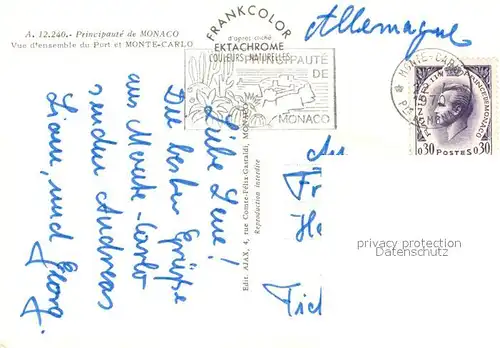 A. 12.240.- Principauté de MONACO
Vue d'ensemble du Port et MONTE-CARLO
FRANKCOLOR
d'après cliché
EKTACHROME
COULEURS NATURELLES
PRINCIPAUTÉ
DE
MONACO
Allemagne
MONTE-CARLO
0,30 POSTES 0,30
Edit. AJAX, 4, rue Comte-Félix-Gastaldi, MONACO
Reproduction interdite
Liebe Lene!
Die besten Grüße
aus Monte-Carlo
senden Andreas
und Georg.
privacy protection
Datenschutz